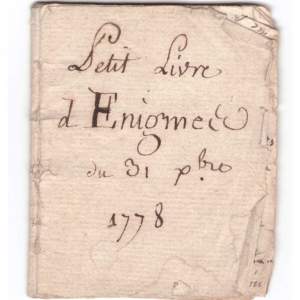 Petit Livre
d'Enigmes
du 31 xbre
1778